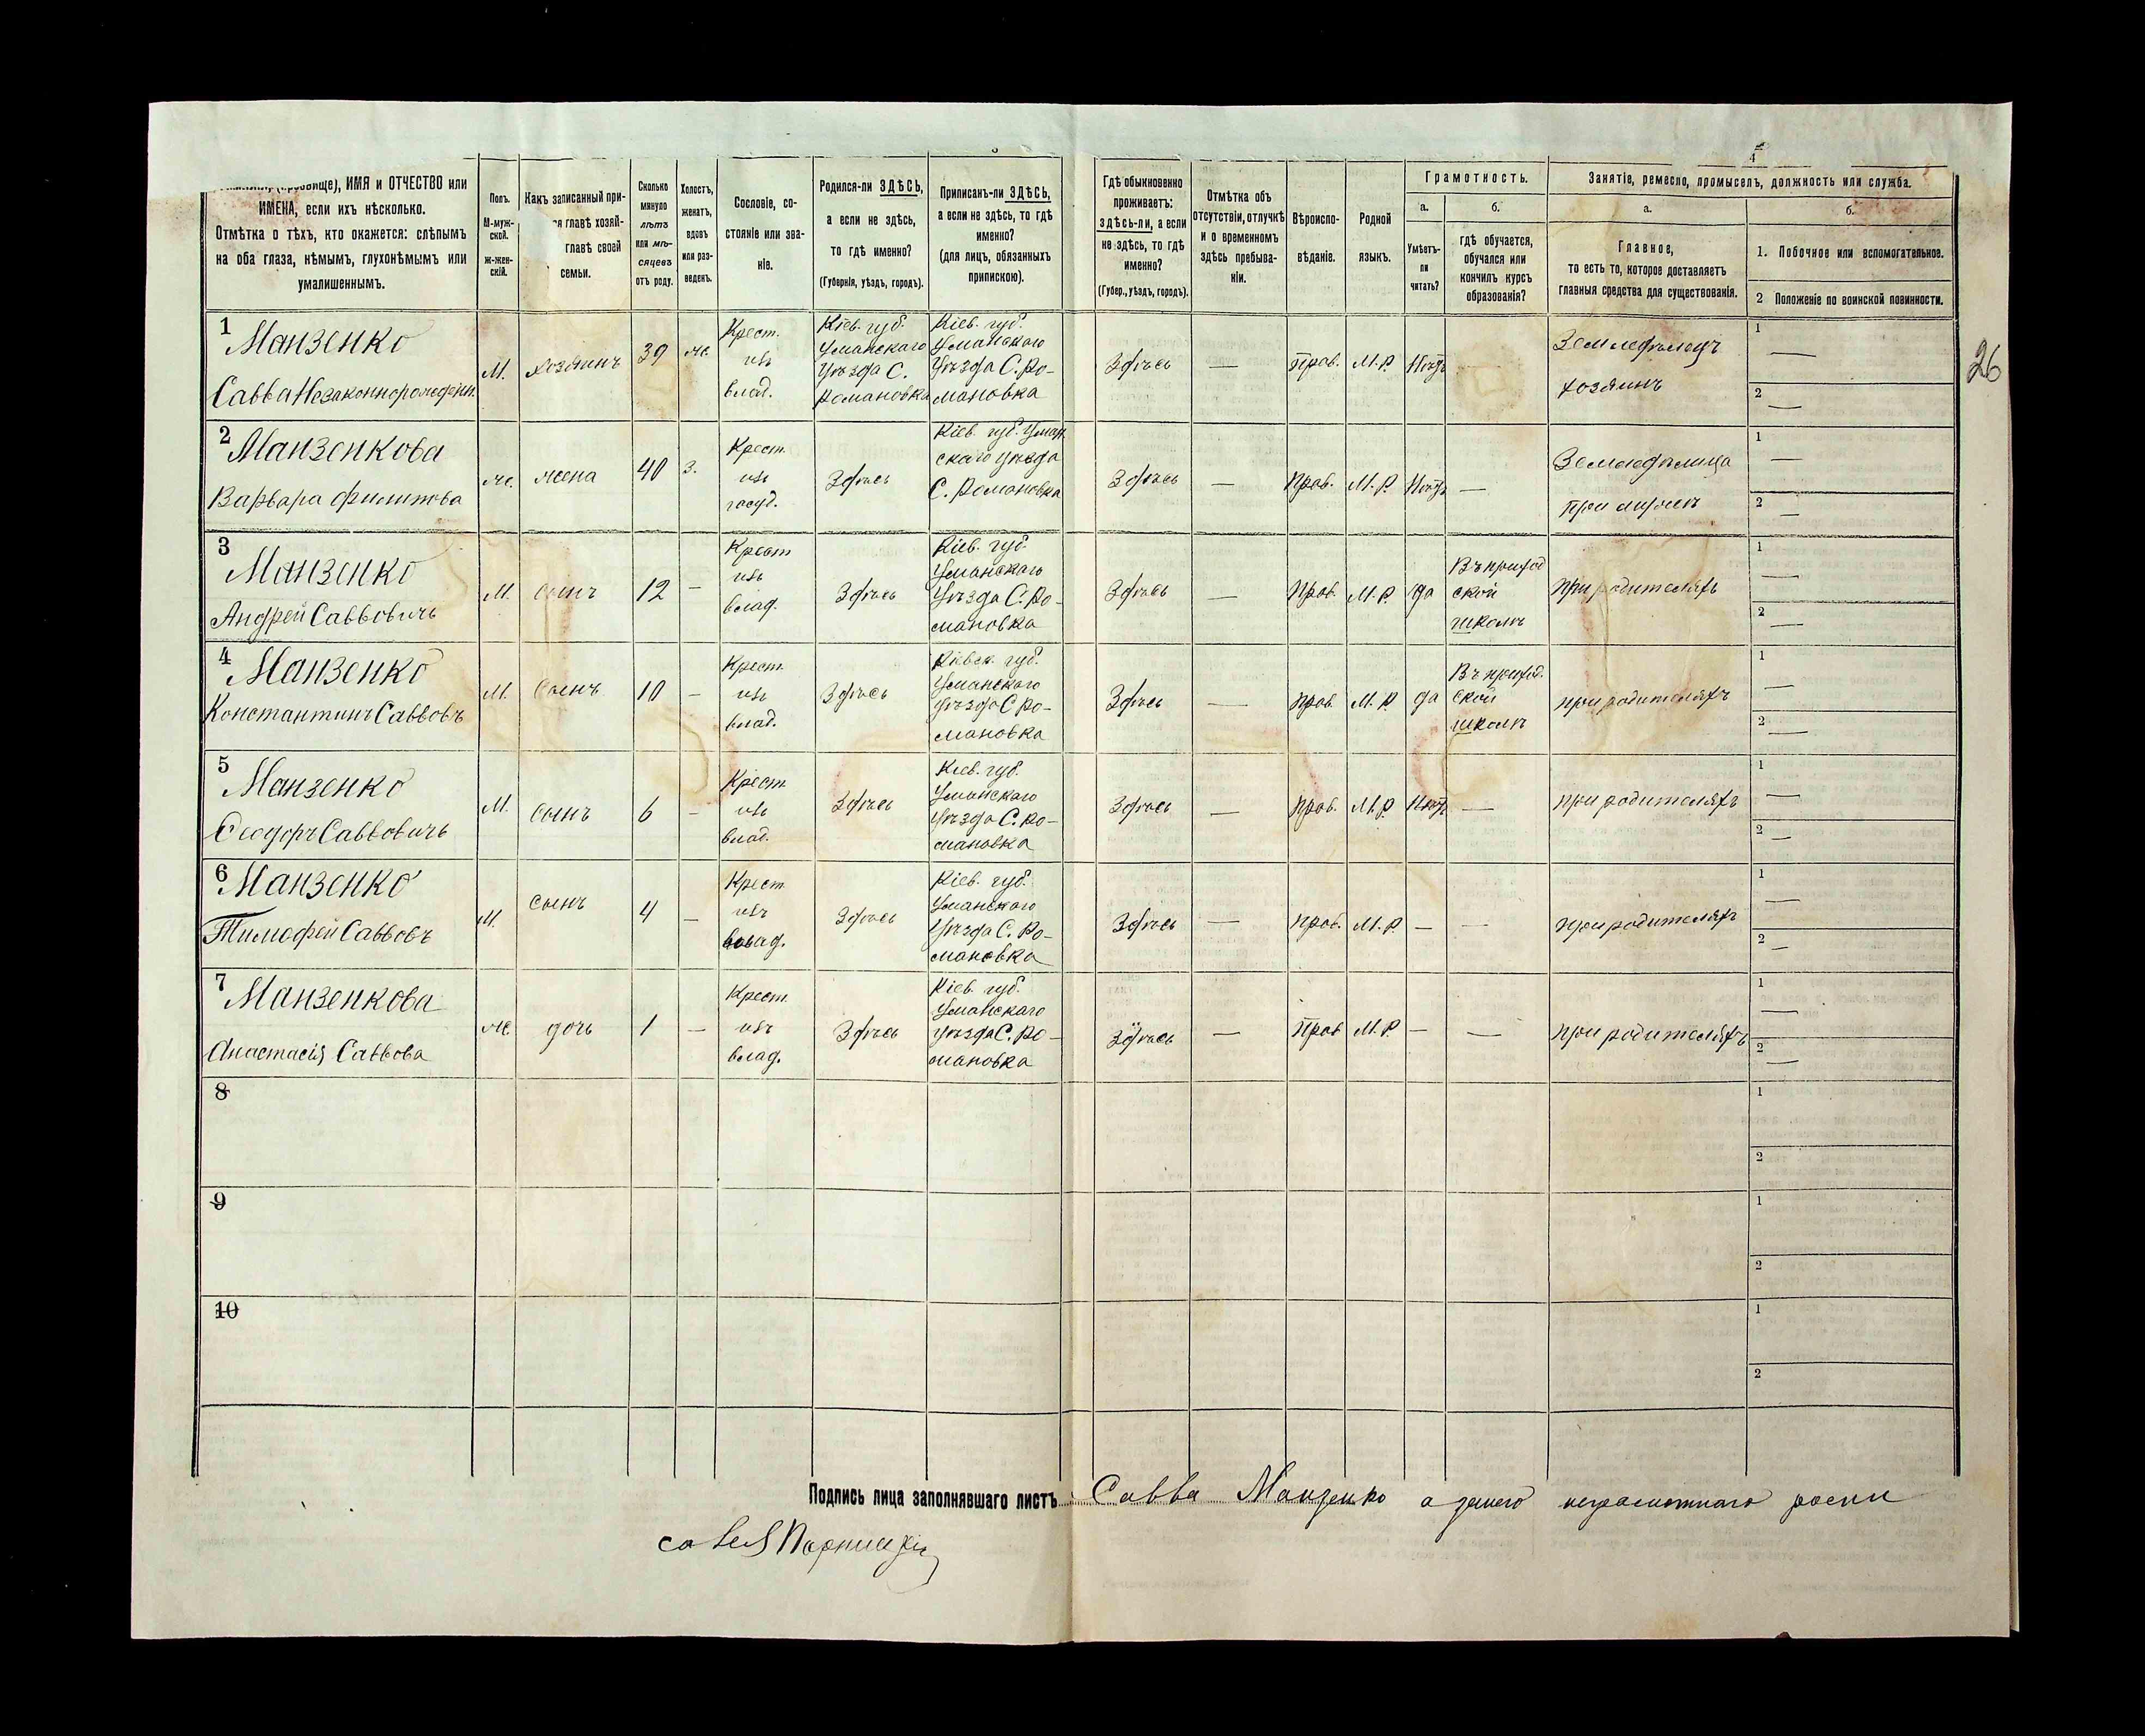 4
(прозвище), ИМЯ и ОТЧЕСТВО или
ИМЕНА, если ихъ нѣсколько.
Отмѣтка о тѣхъ, кто окажется: слѣпымъ
на оба глаза, нѣмымъ, глухонѣмымъ или
умалишеннымъ.
Полъ.
М-муж-
ской.
Ж-жен-
скій.
Какъ записанный при-
ся главѣ хозяй-
главѣ своей
семьи.
Сколько
минуло
лѣтъ
или мѣ-
сяцевъ
отъ роду.
Холостъ,
женатъ,
вдовъ
или раз-
веденъ.
Сословіе, со-
стояніе или зва-
ніе.
Родился-ли ЗДѢСЬ,
а если не здѣсь,
то гдѣ именно?
(Губернія, уѣздъ, городъ).
Приписанъ-ли ЗДѢСЬ,
а если не здѣсь, то гдѣ
именно?
(для лицъ, обязанныхъ
припискою).
Гдѣ обыкновенно
проживаетъ:
здѣсь-ли, а если
не здѣсь, то гдѣ
именно?
(Губер., уѣздъ, городъ).
Отмѣтка объ
отсутствіи, отлучкѣ
и о временномъ
здѣсь пребыва-
ніи.
Вѣроиспо-
вѣданіе.
Родной
языкъ.
Грамотность.
а.
Умѣетъ-
ли
читать?
б.
гдѣ обучается,
обучался или
кончилъ курсъ
образованія?
Занятіе, ремесло, промыселъ, должность или служба.
а.
Главное,
то есть то, которое доставляетъ
главныя средства для существованія.
б.
1. Побочное или вспомогательное.
2 Положеніе по воинской повинности.
26
1 Манзенко
Савва Незаконнорожденн.
М.
хозяинъ
39
ж.
Крест.
изъ
влад.
Кіев. губ.
Уманскаго
Уѣзда С.
Романовка
Кіев. губ.
Уманскаго
Уѣзда С. Ро-
мановка
Здѣсь
—
Прав.
М.Р.
Нѣтъ
Земледѣлецъ
хозяинъ
1 —
2 —
2 Манзенкова
Варвара Филипова
ж.
жена
40
з.
Крест.
изъ
госуд.
Здѣсь
Кіев. губ. Уман
скаго Уѣзда
С. Романовка
Здѣсь
—
Прав.
М.Р.
Нѣтъ
—
Земледѣлица
при мужѣ
1 —
2 —
3 Манзенко
Андрей Саввовичъ
М.
сынъ
12
—
Крест
изъ
влад.
Здѣсь
Кіев. губ.
Уманскаго
Уѣзда С. Ро-
мановка
Здѣсь
—
Прав.
М.Р.
да
Въ приход
ской
школѣ
При родителяхъ
1 —
2 —
4 Манзенко
Константинъ Саввовъ
М.
сынъ
10
—
Крест.
изъ
влад.
Здѣсь
Кіевск. губ.
Уманскаго
Уѣзда С Ро-
мановка
Здѣсь
—
Прав.
М.Р.
да
Въ приход.
ской
школѣ
при родителяхъ
1 —
2 —
5 Манзенко
Ѳеодоръ Саввовичъ
М.
сынъ
6
—
Крест
изъ
влад.
Здѣсь
Кіев. губ.
Уманскаго
Уѣзда С. Ро-
мановка
Здѣсь
—
Прав.
М.Р.
Нѣтъ
—
при родителяхъ
1 —
2 —
6 Манзенко
Тимофей Саввовъ
М.
сынъ
4
—
Крест
изъ
влад.
Здѣсь
Кіев. губ.
Уманскаго
Уѣзда С. Ро-
мановка
Здѣсь
—
Прав.
М.Р.
—
—
при родителяхъ
1 —
2 —
7 Манзенкова
Анастасія Саввова
ж.
дочь
1
—
Крест.
изъ
влад.
Здѣсь
Кіев. губ.
Уманскаго
Уѣзда С. Ро-
мановка
Здѣсь
—
Прав
М.Р.
—
—
при родителяхъ
1 —
2 —
8
1
2
9
1
2
10
1
2
Подпись лица заполнявшаго листъ Савва Манзенко а занего неграмотнаго роспи